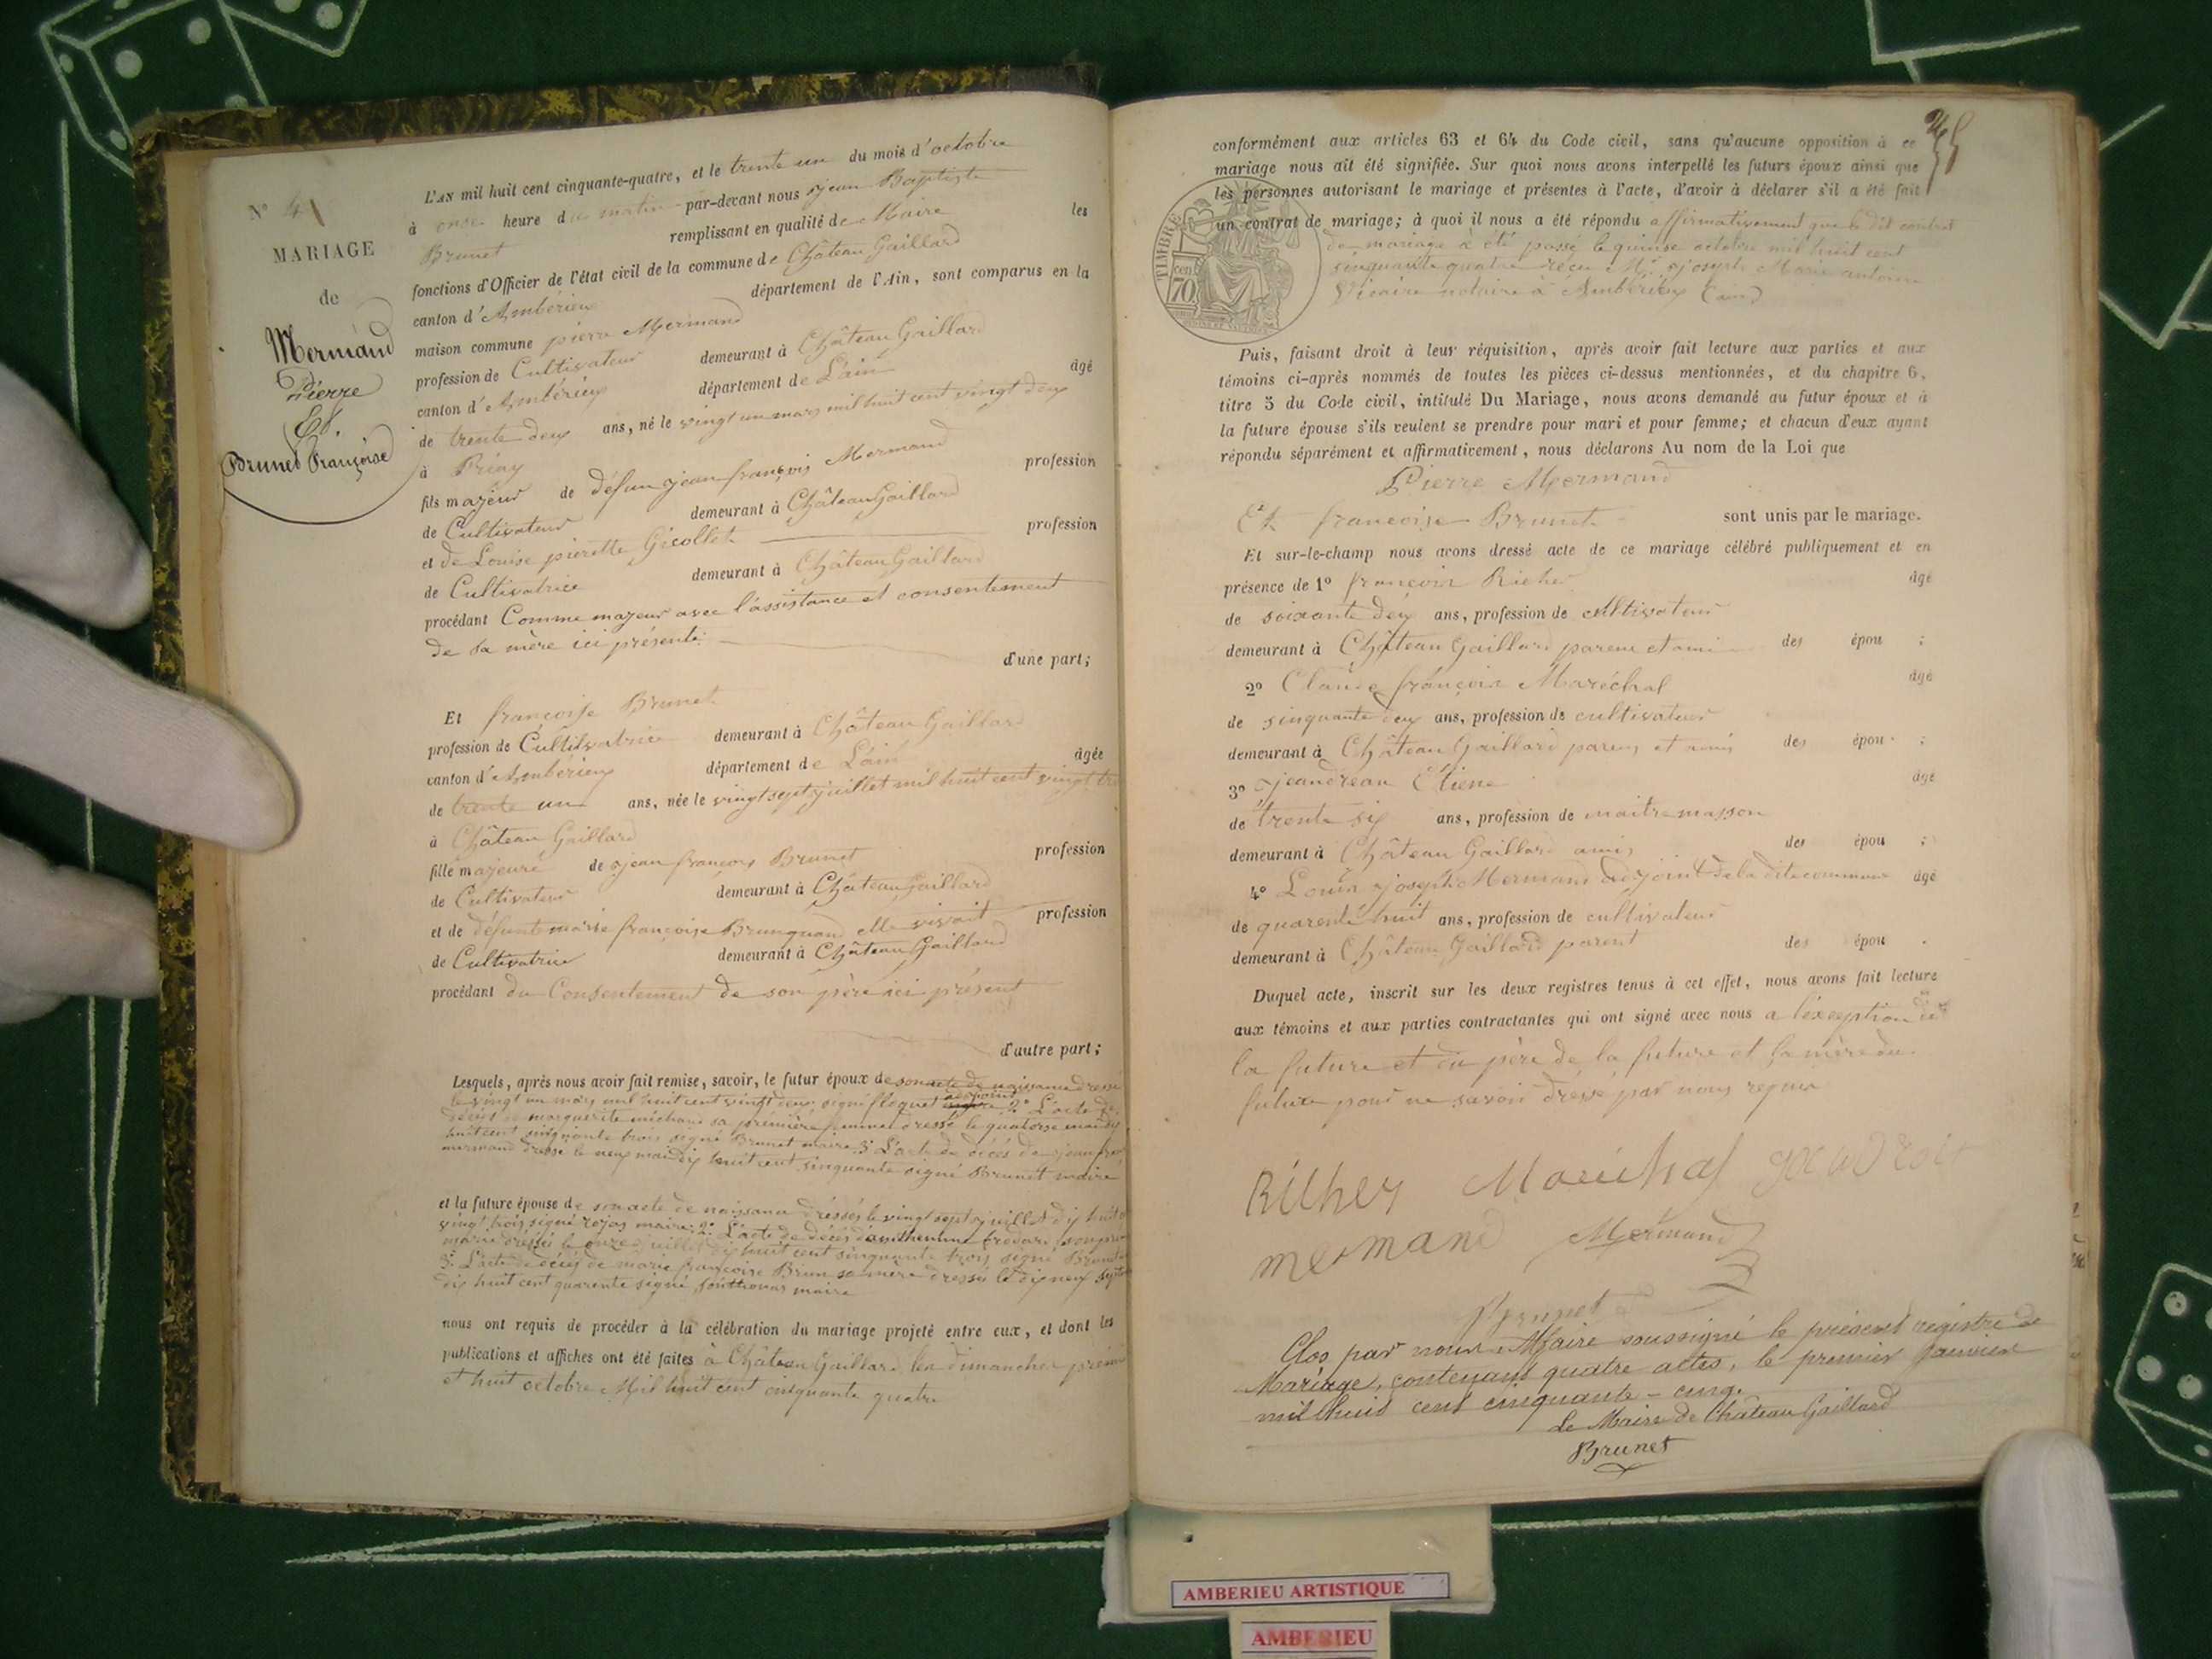 N° 4
MARIAGE
de
Mermand
Pierre
Et
Brunet Françoise
L'AN mil huit cent cinquante-quatre, et le trente un du mois d'octobre
à onze heure du matin par-devant nous jean Baptiste
Brunet remplissant en qualité de Maire les
fonctions d'Officier de l'état civil de la commune de Château Gaillard
canton d'Ambérieux département de l'Ain, sont comparus en la
maison commune pierre Mermand
profession de Cultivateur demeurant à Château Gaillard
canton d'Ambérieux département de L'ain âgé
de trente deux ans, né le vingt un mars mil huit cent vingt deux
à
fils majeur de défun jean françois Mermand profession
de Cultivateur demeurant à Château Gaillard
et de Louise pierette Gicollet profession
de Cultivatrice demeurant à Château Gaillard
procédant Comme majeur avec l'assistance et consentement
de sa mère ici présente
d'une part;
Et françoise Brunet
profession de Cultivatrice demeurant à Château Gaillard
canton d'Ambérieux département de L'ain âgée
de trente un ans, née le vingt sept juillet mil huit cent vingt
à Château Gaillard
fille majeure de jean françois Brunet profession
de Cultivateur demeurant à Château Gaillard
et de défunte marie françoise Brun quand elle vivait profession
de Cultivatrice demeurant à Château Gaillard
procédant du Consentement de son père ici présent
d'autre part;
Lesquels, après nous avoir fait remise, savoir, le futur époux de son acte de naissance dressé
le vingt un mars mil huit cent vingt deux signé adjoint 2° L'acte de
décès de marguerite sa première femme dressé le quatorze
huit cent cinquante trois signé Brunet maire 3° L'acte de décès de jean
mermand dressé le neuf mai dix huit cent sinquante signé Brunet maire
et la future épouse de son acte de naissance dressés le vingt sept juillet dix huit
vingt trois signé rojas maire 2° L'acte de décès
dressés le onze juillet dix huit cent sinquante trois signé Brunet
3° L'acte de décès de marie françoise Brun sa mère dressés le dix neuf
dix huit cent quarente signé maire
nous ont requis de procéder à la célébration du mariage projeté entre eux, et dont les
publications et affiches ont été faites à Château Gaillard les dimanches
et huit octobre Mil huit cent cinquante quatre
conformément aux articles 63 et 64 du Code civil, sans qu'aucune opposition à ce
mariage nous ait été signifiée. Sur quoi nous avons interpellé les futurs époux ainsi que
les personnes autorisant le mariage et présentes à l'acte, d'avoir à déclarer s'il a été fait
un contrat de mariage; à quoi il nous a été répondu affirmativement que le dit contrat
de mariage a été passé le quinse octobre mil huit cent
sinquante quatre Me joseph Marie antoine
Vicaire notaire à Ambérieux (ain)
TIMBRE
70 cen
Puis, faisant droit à leur réquisition, après avoir fait lecture aux parties et aux
témoins ci-après nommés de toutes les pièces ci-dessus mentionnées, et du chapitre 6,
titre 5 du Code civil, intitulé Du Mariage, nous avons demandé au futur époux et à
la future épouse s'ils veulent se prendre pour mari et pour femme; et chacun d'eux ayant
répondu séparément et affirmativement, nous déclarons Au nom de la Loi que
Pierre Mermand
Et françoise Brunet sont unis par le mariage.
Et sur-le-champ nous avons dressé acte de ce mariage célébré publiquement et en
présence de 1° françois Richer âgé
de soixante deux ans, profession de cultivateur
demeurant à Château Gaillard parent et ami des épou ;
2° Claude françois Maréchal âgé
de sinquante deux ans, profession de cultivateur
demeurant à Château Gaillard parens et amis des épou ;
3° Etiene âgé
de trente six ans, profession de maitre masson
demeurant à Château Gaillard amis des épou ;
4° Louis joseph Mermand adjoint de la dite commune âgé
de quarente huit ans, profession de cultivateur
demeurant à Château Gaillard parent des épou .
Duquel acte, inscrit sur les deux registres tenus à cet effet, nous avons fait lecture
aux témoins et aux parties contractantes qui ont signé avec nous a l'exception de
la future et du père de la future et la mère du
future pour ne savoir dressé par nous requis
Richer Maréchal
mermand Mermand
Brunet
Clos par nous Maire soussigné le présent registre de
Mariage, contenant quatre actes, le premier Janvier
mil huit cent cinquante-cinq.
Le Maire de Château Gaillard
Brunet
AMBERIEU ARTISTIQUE
AMBERIEU